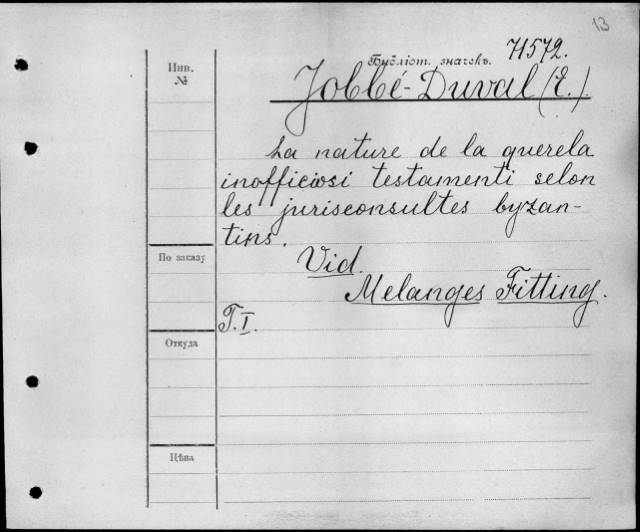 13
Библіот. значекъ. 71572.
Инв.
№
Jobbé-Duval (E.).
La nature de la querela
inofficiosi testamenti selon
les jurisconsultes byzan-
tins.
По заказу
Vid.
Melanges Fitting.
T.I.
Откуда
Цѣна